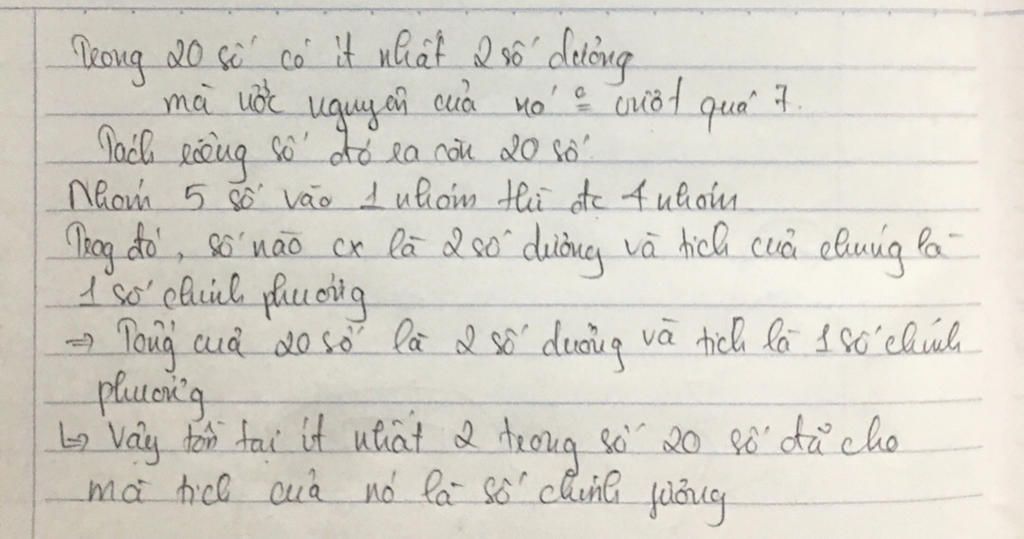 Trong 20 số có ít nhất 2 số dương
mà ước nguyên của nó vượt quá 7.
Tách riêng số đó ra còn 20 số
Nhóm 5 số vào 1 nhóm thì đc 4 nhóm
Trog đó, số nào cx là 2 số dương và tích của chúng là
1 số chính phương
=> Tổng của 20 số là 2 số dương và tích là 1 số chính
phương
↳ Vậy tồn tại ít nhất 2 trong số 20 số đã cho
mà tích của nó là số chính